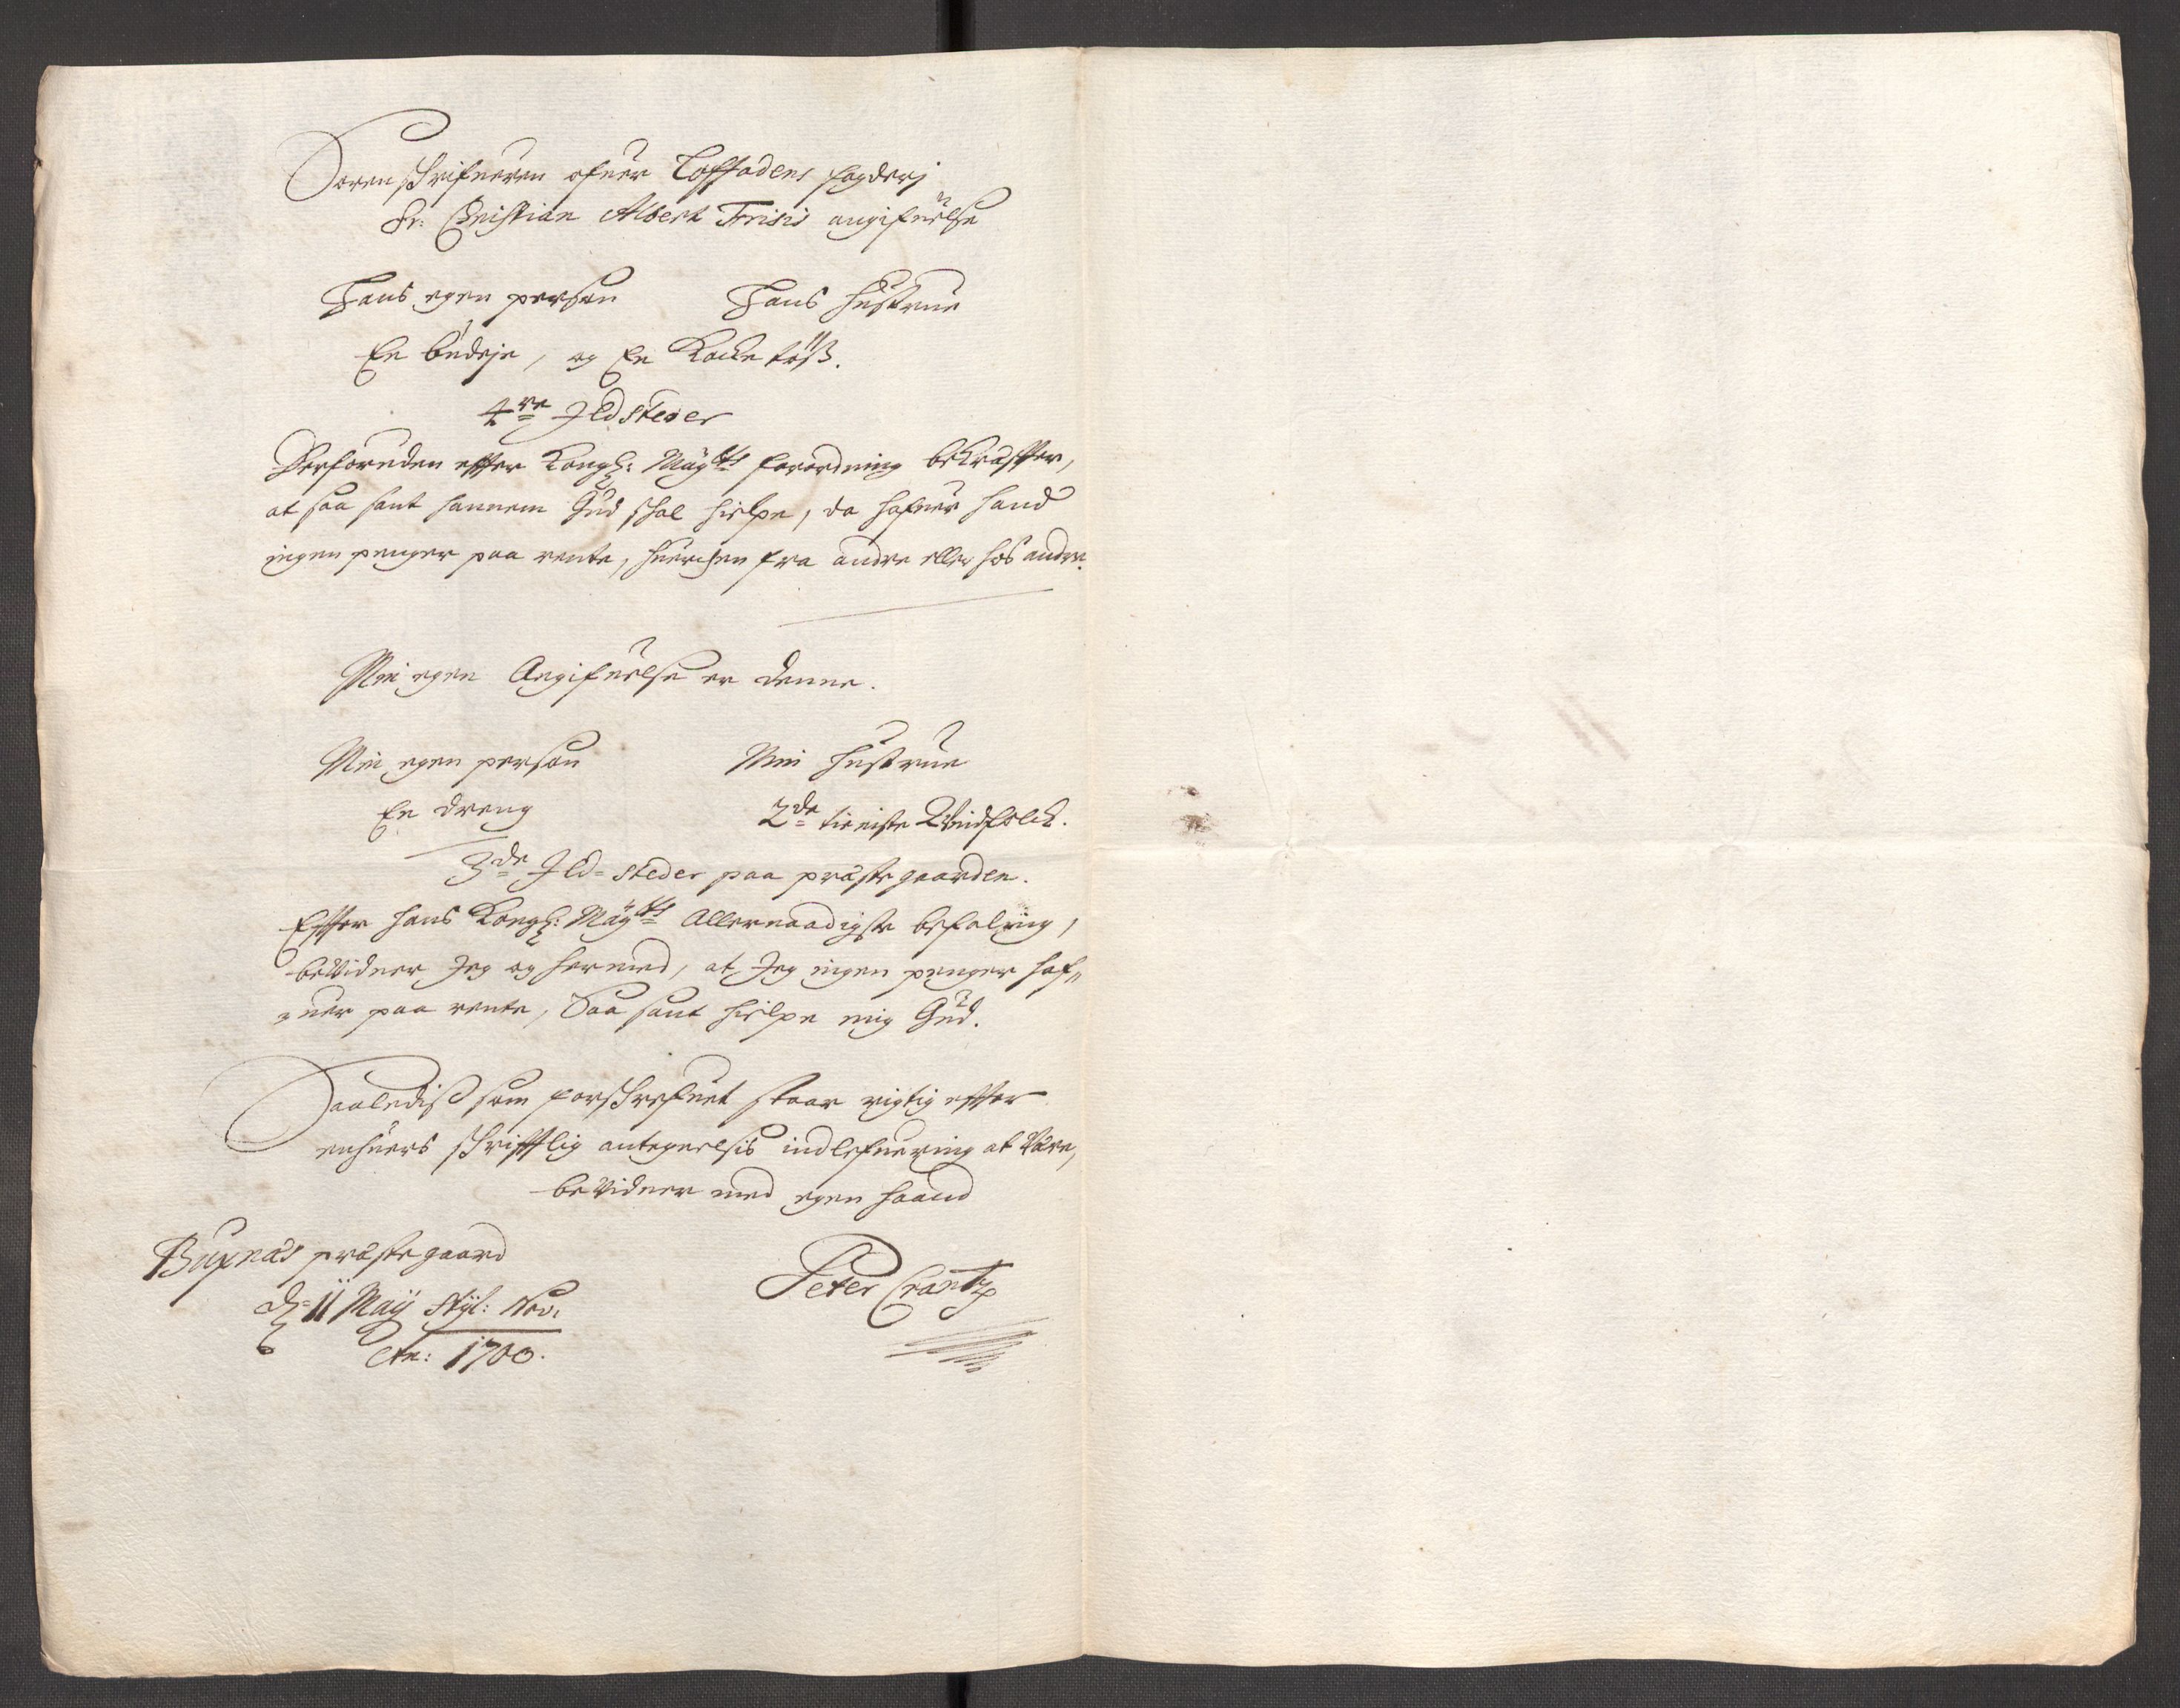 Sorenschrifueren ofuer Loffodens fogderj
Sr: Christian Albert Frisis angifuelse
Hans egen person Hans hustrue
En budeje, og En Kocke töß.
4re Jldsteder
Herforuden effter Kongl: Maÿtts forordning bekræffter,
at saa sant hannem Gud schal hielpe, da hafuer hand
ingen penger paa rente, huerchen fra andre eller hos andre.
Min egen Angifuelse er denne.
Min egen person Min hustrue
En dreng 2de tieniste Qvindfolck.
3de Jld-steder paa præstegaarden.
Effter hans Kongl: Maÿtts Allernaadigste befaling,
bevidner Jeg og hermed, at Jeg ingen penger haf-
uer paa rente, Saa sant hielpe mig Gud.
Saaledis som forschrefuet staar rigtig effter
enhuers schrifftlig antegnelsis indlefuering at være,
bevidner med egen haand
Buxnæs præstegaard Peter Crantz
d: 11 Maij Stÿl: Nov:
An: 1700.